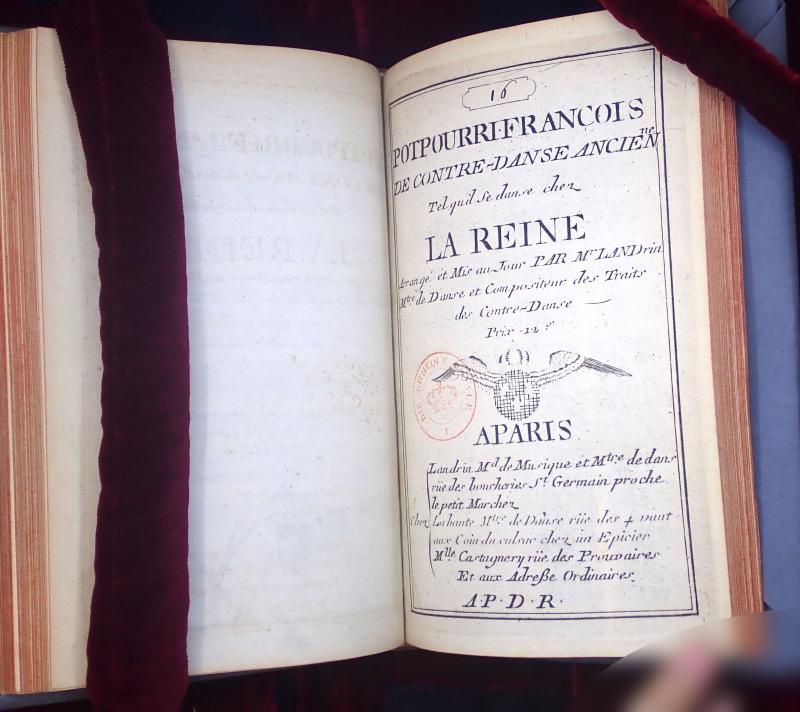 16
POTPOURRI·FRANCOIS
DE CONTRE-DANSE ANCIEN^ne
Tel quil Se danse chez
LA REINE
Arangé et Mis au Jour PAR M^r LANDrin
M^tre de Danse et Compositeur des Traits
des Contre-Danse
Prix 12^s
APARIS
Landrin M^d de Musique et M^tre de dans
rüe des boucheries S^t Germain proche
le petit Marchez
Chez La hante M^tre de Danse rüe des 4 vant
aux Coin du culsac chez un Epicier
M^lle Castagnery rüe des Prouvaires
Et aux Adreße Ordinaires
A·P·D·R·